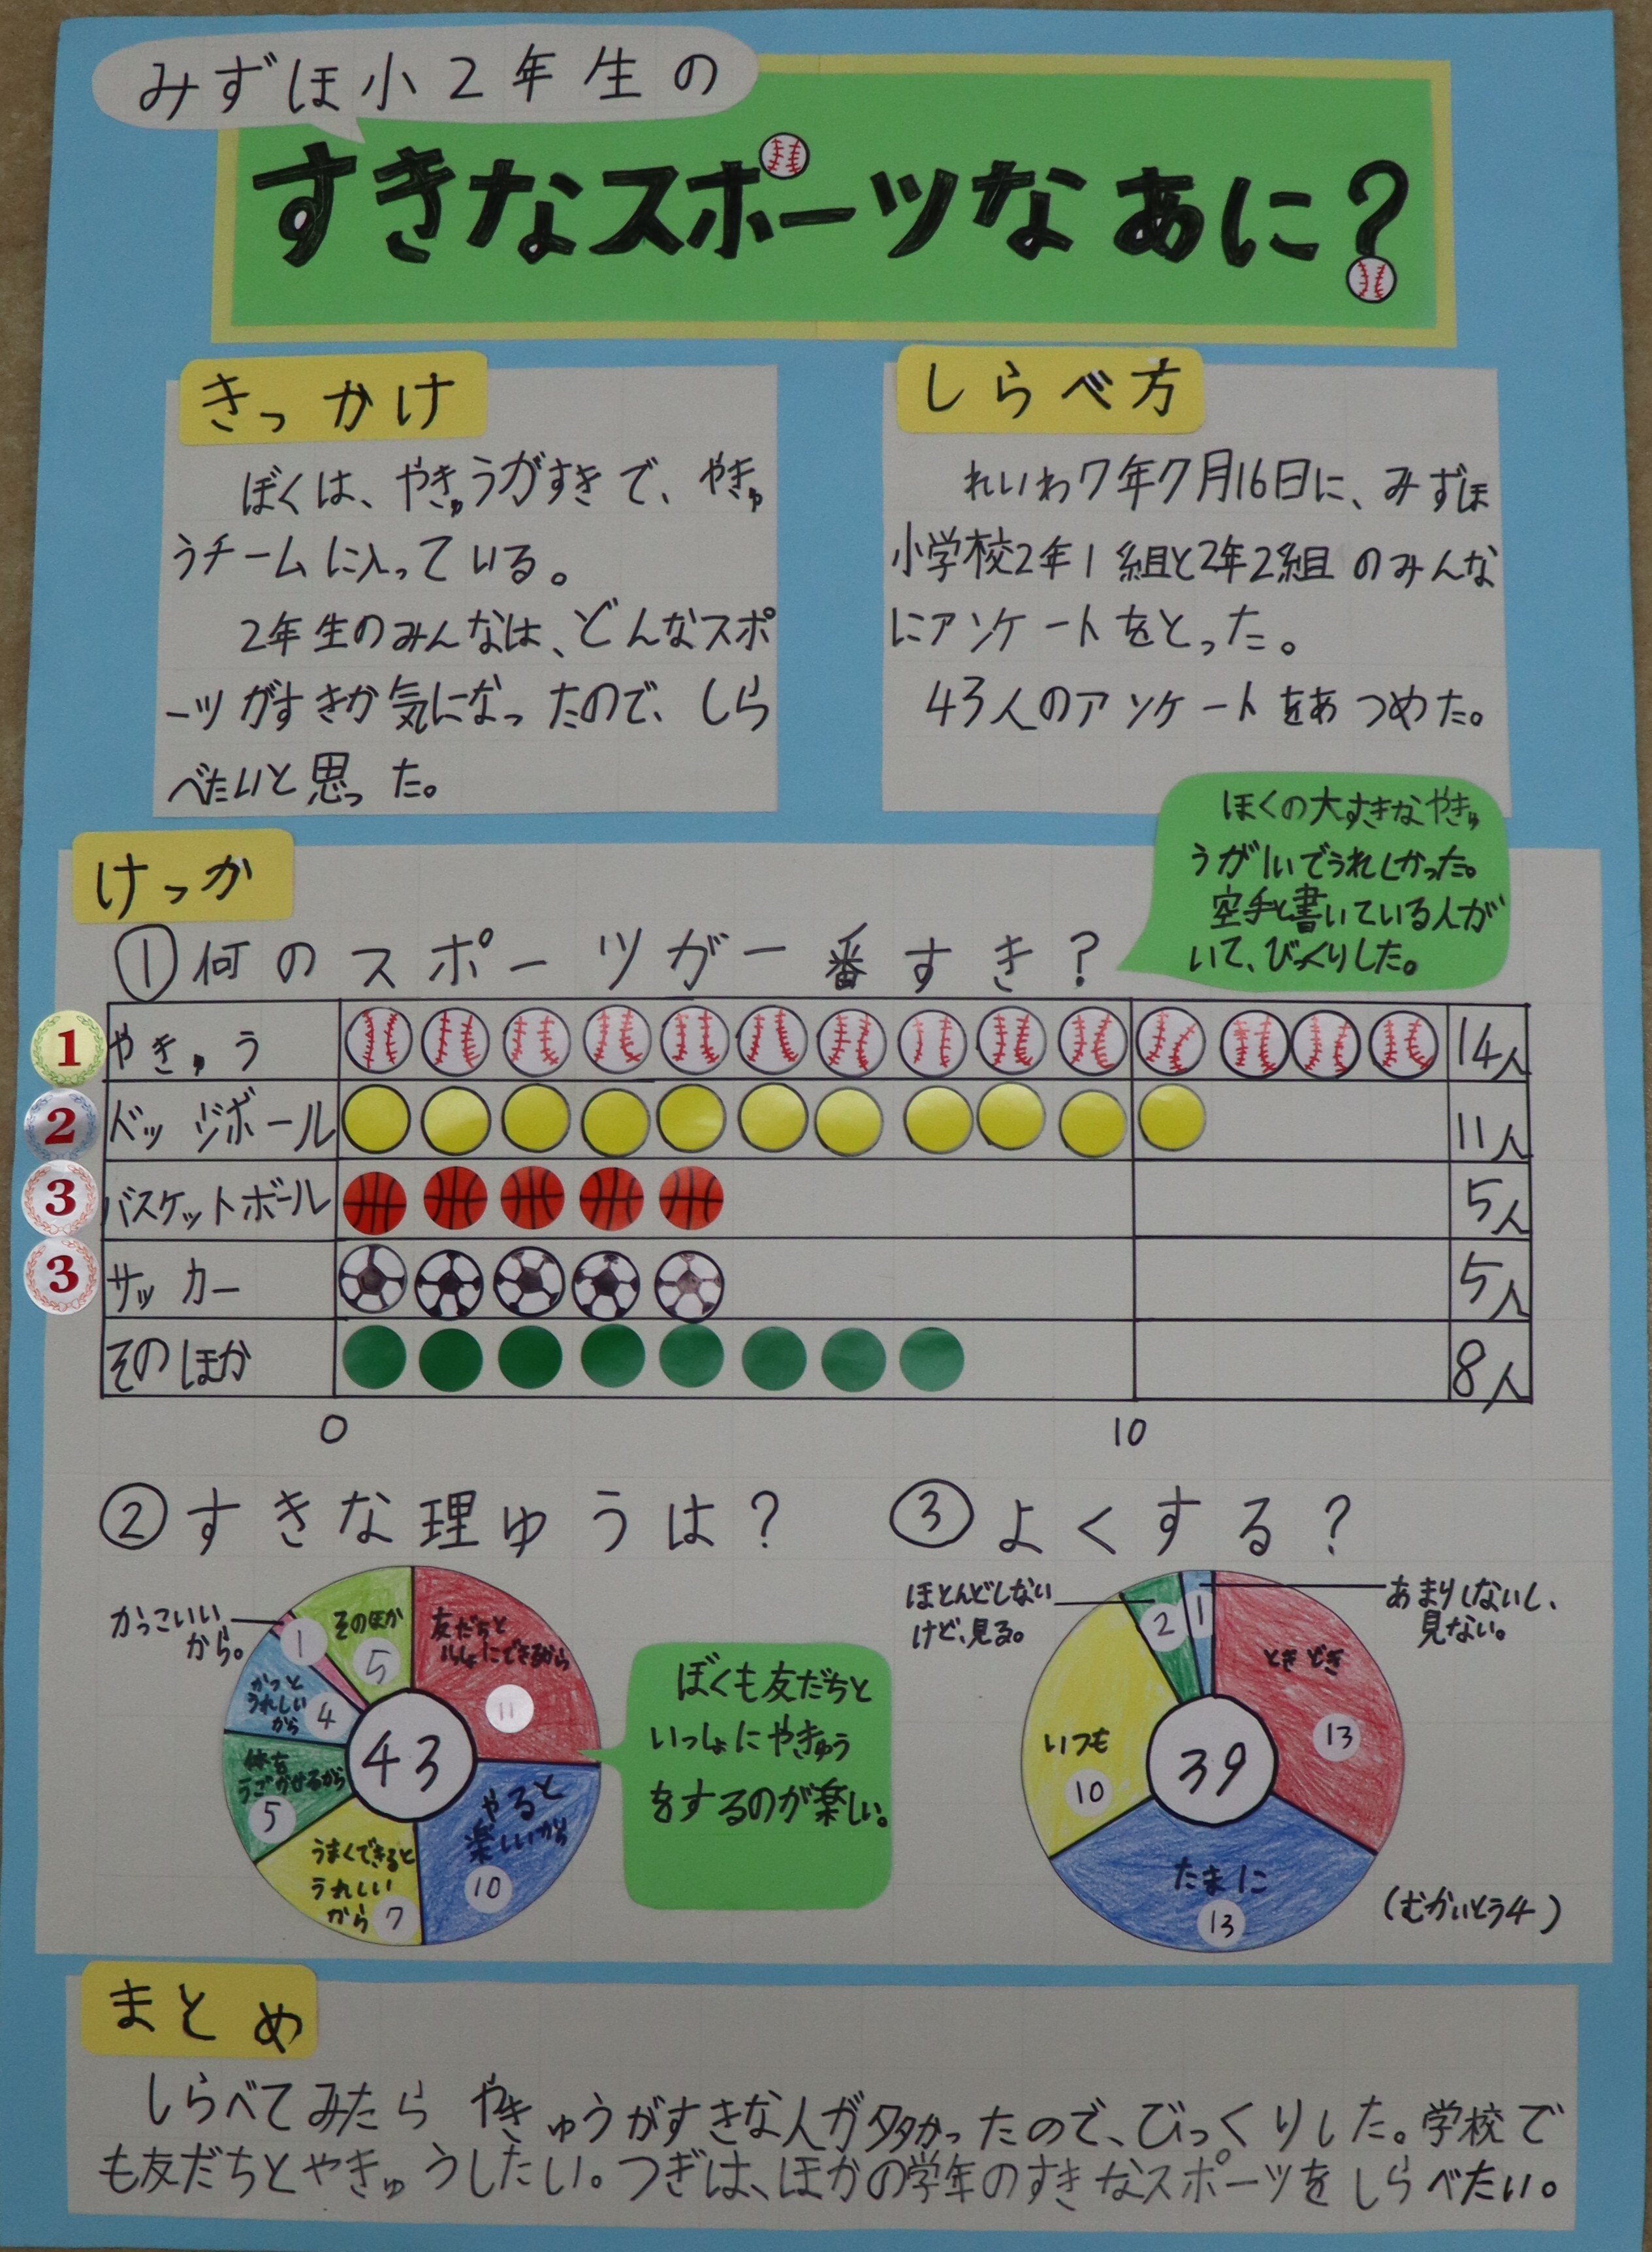 みずほ小2年生の
すきなスポーツなあに?
きっかけ
ぼくは、やきゅうがすきで、やきゅ
うチームに入っている。
2年生のみんなは、どんなスポ
ーツがすきか気になったので、しら
べたいと思った。
しらべ方
れいわ7年7月16日に、みずほ
小学校2年1組と2年2組のみんな
にアンケートをとった。
43人のアンケートをあつめた。
けっか
ほくの大すきなやきゅ
うが1いでうれしかった。
空手と書いている人が
いて、びっくりした。
①何のスポーツが一番すき?
1 やきゅう 14人
2 ドッジボール 11人
3 バスケットボール 5人
3 サッカー 5人
そのほか 8人
0 10
②すきな理ゆうは?
友だちと
いっしょにできるから
11
やると
楽しいから
10
うまくできると
うれしい
から 7
体を
うごかせるから
5
かつと
うれしい
から 4
かっこいい
から。
1
そのほか
5
43
ぼくも友だちと
いっしょにやきゅう
をするのが楽しい。
③よくする?
ときどき
13
たまに
13
いつも
10
ほとんどしない
けど、見る。
2
あまりしないし、
見ない。
1
39
(むかいとう4)
まとめ
しらべてみたらやきゅうがすきな人が多かったので、びっくりした。学校で
も友だちとやきゅうしたい。つぎは、ほかの学年のすきなスポーツをしらべたい。